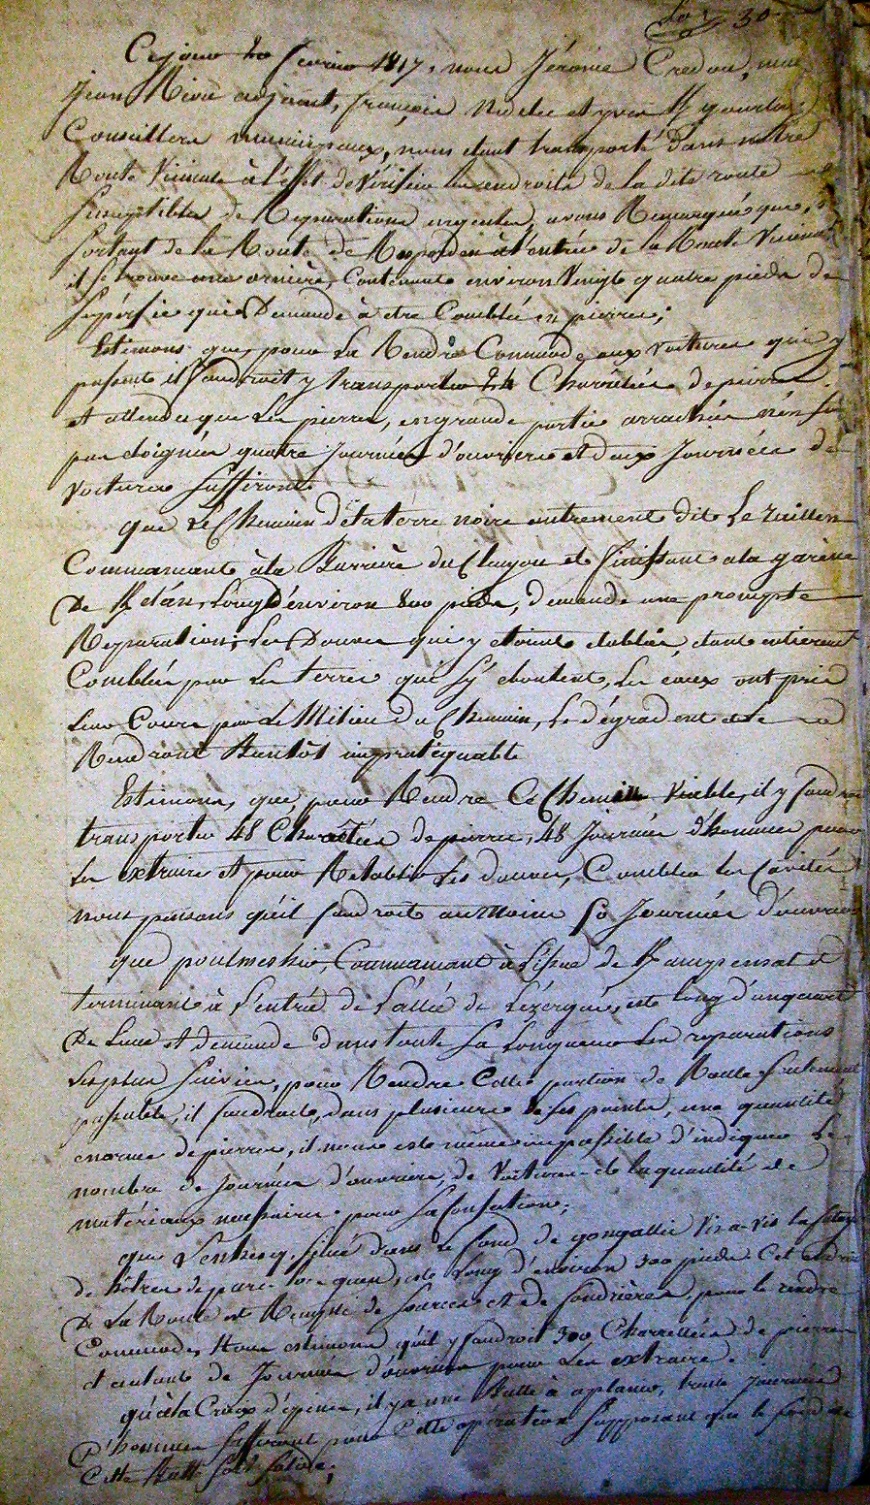 fol 30
Ce jour 20 fevrier 1817, nous Jérome Credou, maire
jean Rivie adjoint, françois Nedelec et yves Ky gourlay
Conseillers municipaux, nous étant transporté dans notre
Route Vicinale à l'effet de Vérifier les endroits de la dite route
Suseptibles de Réparations urgentes, avons Remarqué que,
Sortant de la Route de Rosporden à l'entrée de la Route Vicinale
il se trouve une ornière, Contenant environ Vingt quatre pieds de
Supérfsie qui Demande à etre Comblée en pierres;
Estimons que, pour La Rendre Commode aux Voitures qui y
passent il faudroit y transporter 24 Charrêtées de pierres
et attendu que Les pierres, en grande partie arrachées n'en sont
pas éloignées quatre Journées d'ouvriers et deux Journées de
Voitures Suffiront
que Le Chemin de la térre noire autrement dit Le
Commancant à la Barrière du et finissant a la garène
De K/dán, Long d'environ 800 pieds, demande une prompte
Réparation; Les Douves qui y etoient etablies, étant entierement
Comblées par Les terres qui s'y eboulent, Les éaux ont pris
Leur Cours par Le Milieu du Chemin, Le dégradent et le
Rendront Bientôt impratiquable
Estimons, que, pour Rendre Ce Chemin Viable, il y faudroit
transporter 48 Charêtées de pierres, 48 Journées d'hommes pour
Les extraire et pour Retablir Les douves, Combler les Cavités
nous pensons qu'il faudroit au Moins 50 Journées d'ouvriers
que poulmeshir, Commancant à L'issue de K/ampensat et
terminant à L'entrée de L'allée de Lézergué, est long d'un quart
De Lieue et demande dans toute Sa Longueur Les reparations
Les plus Suivies, pour Rendre Cette portion de Route Seulement
passable, il faudroit, dans plusieurs de Ses points, une quantité
enorme de pierres, il nous est même impossible d'indiquer Le
nombre de Journées d'ouvriers, de Voitures et la quantité de
matériaux nécessaires pour Sa Confection;
que Venheng, situé dans Le fond de gongallic Vis-a-Vis la
de hêtres de est Long d'environ 300 pieds Cet endroit
De La Route est Rempli de Sources et de fondrières, pour le rendre
Commode, Nous estimons qu'il y faudroit 300 Charrettées de pierres
et autant de Journées d'ouvriers pour Les extraire.
qu'à la Croix d'épines, il y a une Butte à aplanir, trente Journées
D'hommes Suffiront pour Cette opération Supposant que le fond de
Cette Butte Soit Solide;